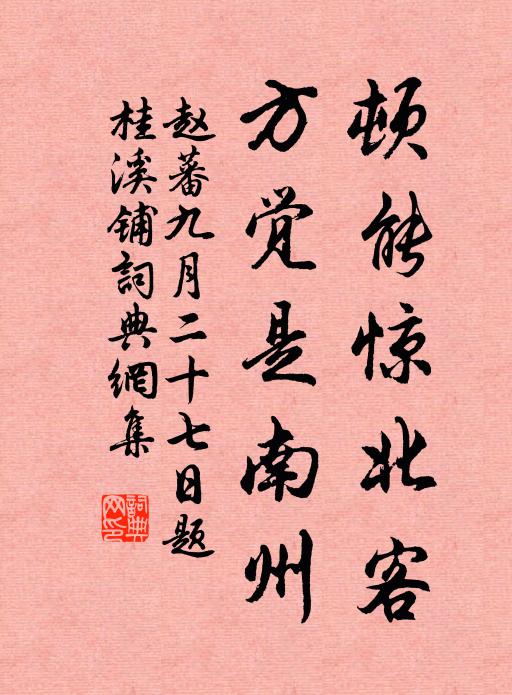 顿能惊北客
方觉是南州
赵蕃九月二十七日题
桂溪铺詞典網集
詞典网印